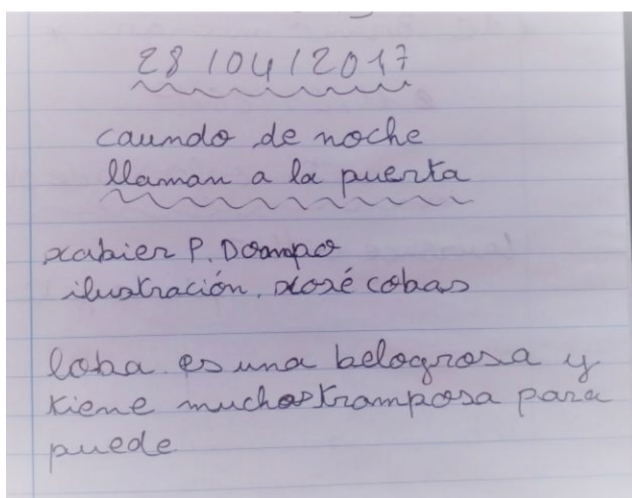 28/04/2017
caundo de noche
llaman a la puerta
xabier P. Doampo
ilustración. xosé cobas
loba es una belogrosa y
tiene muchas tramposa para
puede